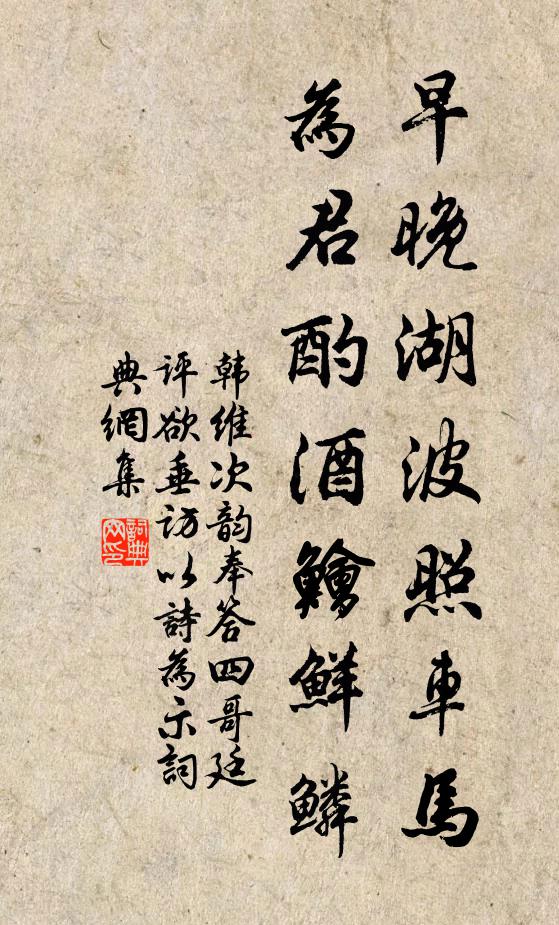 早晚湖波照車馬
為君酌酒鱠鮮鱗
韩維次韵奉答四哥廷
评欲垂访以詩為示詞
典網集
詞典网印